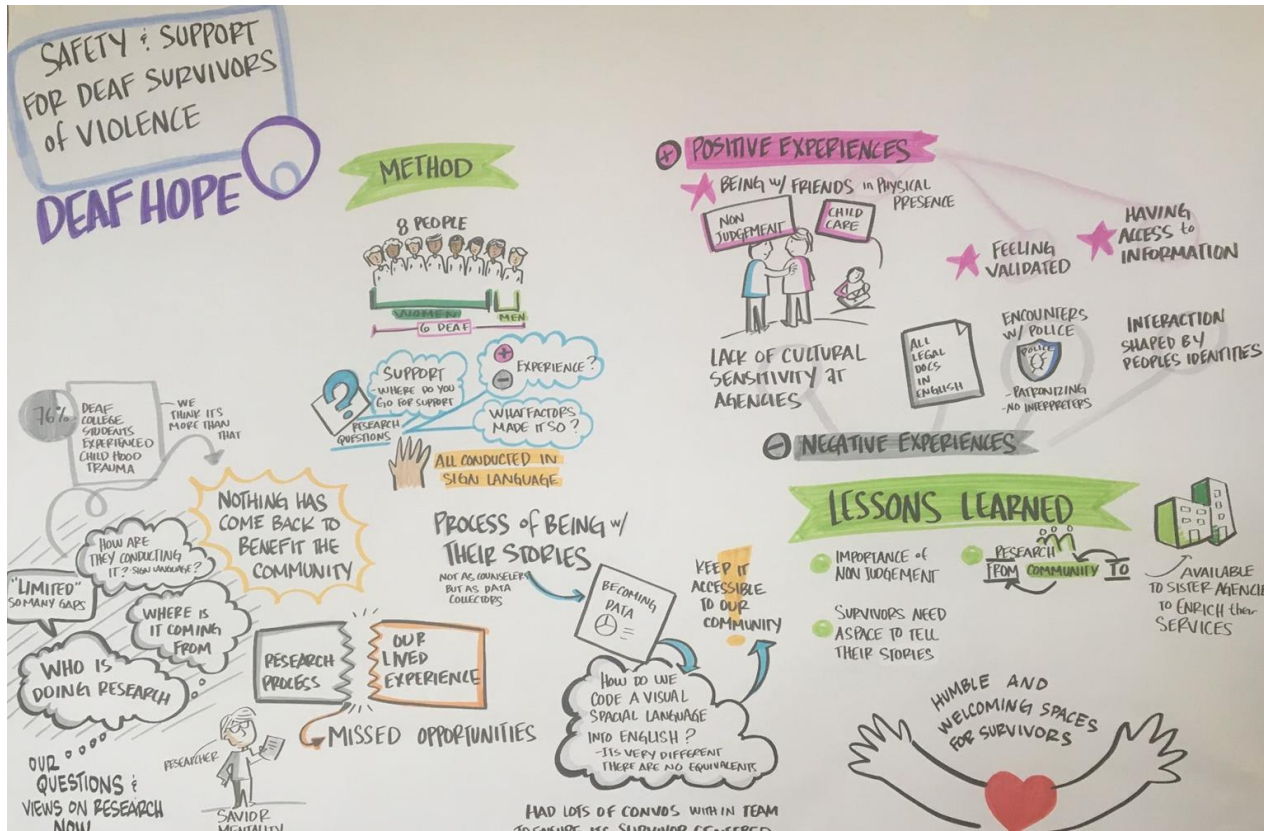 SAFETY & SUPPORT
FOR DEAF SURVIVORS
of VIOLENCE
DEAF HOPE
METHOD
8 PEOPLE
WOMEN
MEN
6 DEAF
SUPPORT
- WHERE DO YOU
GO FOR SUPPORT
+
-
EXPERIENCE?
?
RESEARCH
QUESTIONS
WHAT FACTORS
MADE IT SO?
ALL CONDUCTED IN
SIGN LANGUAGE
76%
DEAF
COLLEGE
STUDENTS
EXPERIENCED
CHILD HOOD
TRAUMA
- WE
THINK ITS
MORE THAN
THAT
NOTHING HAS
COME BACK TO
BENEFIT THE
COMMUNITY
HOW ARE
THEY CONDUCTING
IT? SIGN LANGUAGE?
"LIMITED"
SO MANY GAPS
WHERE IS
IT COMING
FROM
WHO IS
DOING RESEARCH
OUR
QUESTIONS &
VIEWS ON RESEARCH
NOW
RESEARCHER
SAVIOR
MENTALITY
RESEARCH
PROCESS
OUR
LIVED
EXPERIENCE
MISSED OPPORTUNITIES
PROCESS of BEING w/
THEIR STORIES
NOT AS COUNSELERS
BUT AS DATA
COLLECTORS
BECOMING
DATA
KEEP IT
ACCESSIBLE
TO OUR
COMMUNITY
!
HOW DO WE
CODE A VISUAL
SPACIAL LANGUAGE
INTO ENGLISH?
- ITS VERY DIFFERENT
THERE ARE NO EQUIVALENTS
HAD LOTS OF CONVOS WITH IN TEAM
TO ENSURE ITS SURVIVOR CENTERED
+ POSITIVE EXPERIENCES
BEING w/ FRIENDS in PHYSICAL
PRESENCE
NON
JUDGEMENT
CHILD
CARE
FEELING
VALIDATED
HAVING
ACCESS to
INFORMATION
LACK OF CULTURAL
SENSITIVITY at
AGENCIES
ALL
LEGAL
DOCS
IN
ENGLISH
ENCOUNTERS
W/ POLICE
POLICE
- PATRONIZING
- NO INTERPRETERS
INTERACTION
SHAPED BY
PEOPLES IDENTITIES
- NEGATIVE EXPERIENCES
LESSONS LEARNED
IMPORTANCE of
NON JUDGEMENT
RESEARCH
FROM COMMUNITY TO
SURVIVORS NEED
A SPACE TO TELL
THEIR STORIES
AVAILABLE
TO SISTER AGENCIE
TO ENRICH their
SERVICES
HUMBLE AND
WELCOMING SPACES
FOR SURVIVORS